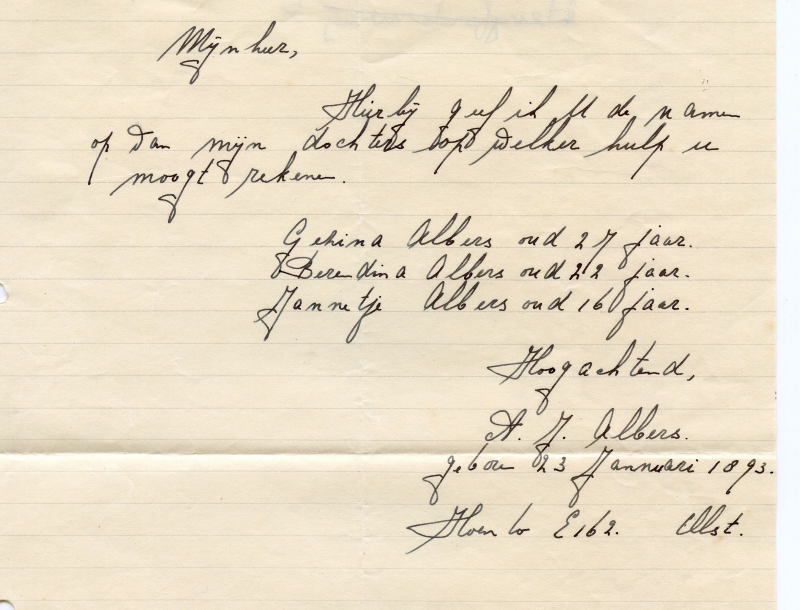 Mijnheer,
Hierbij geef ik U de namen
op van mijn dochters op welker hulp u
moogt rekenen.
Gehina Albers oud 27 jaar.
Berendina Albers oud 22 jaar.
Jannetje Albers oud 16 jaar.
Hoogachtend,
A. J. Albers.
geboren 23 Jannuari 1893.
Hoenlo E162. Olst.